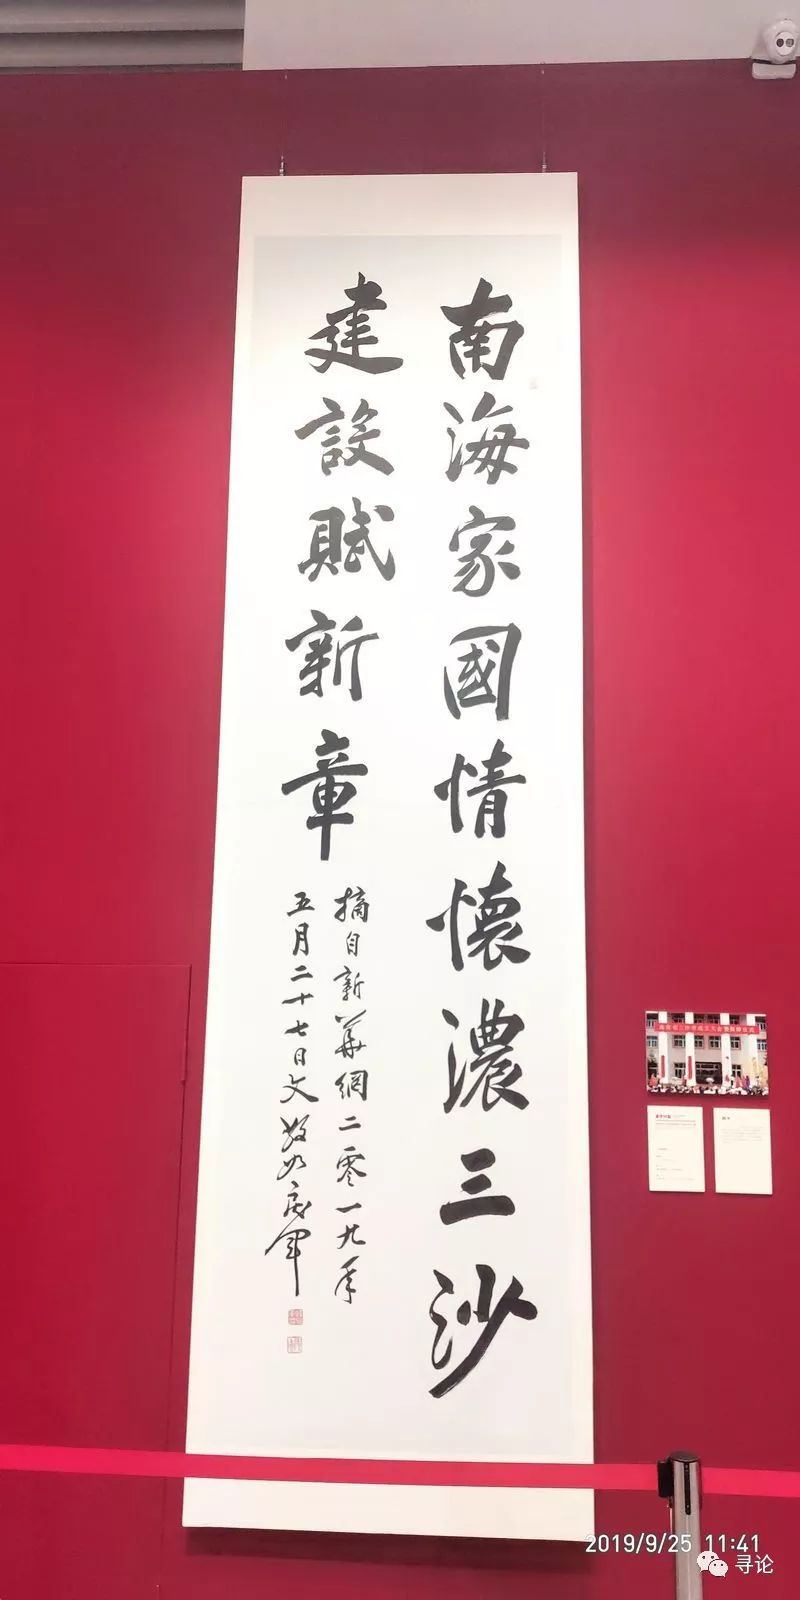 南海家國情懷濃三沙
建設賦新章
摘自新華網二零一九年
五月二十七日文
2019/9/25 11:41
寻论